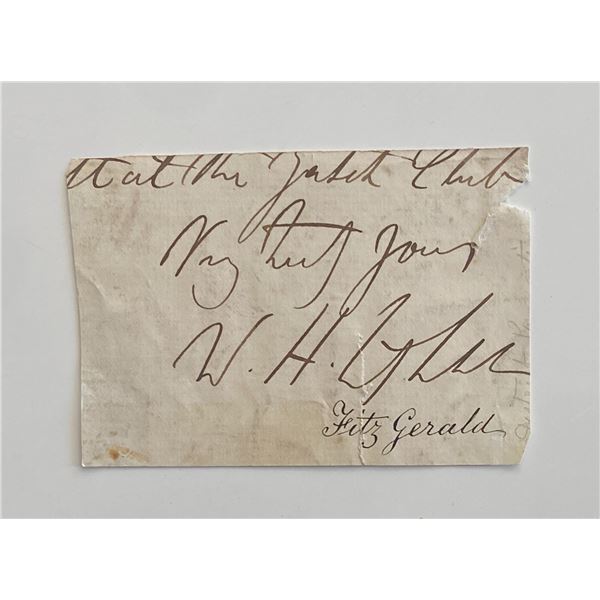 at the Yacht Club
Very truly Yours
W. H.
Fitz Gerald